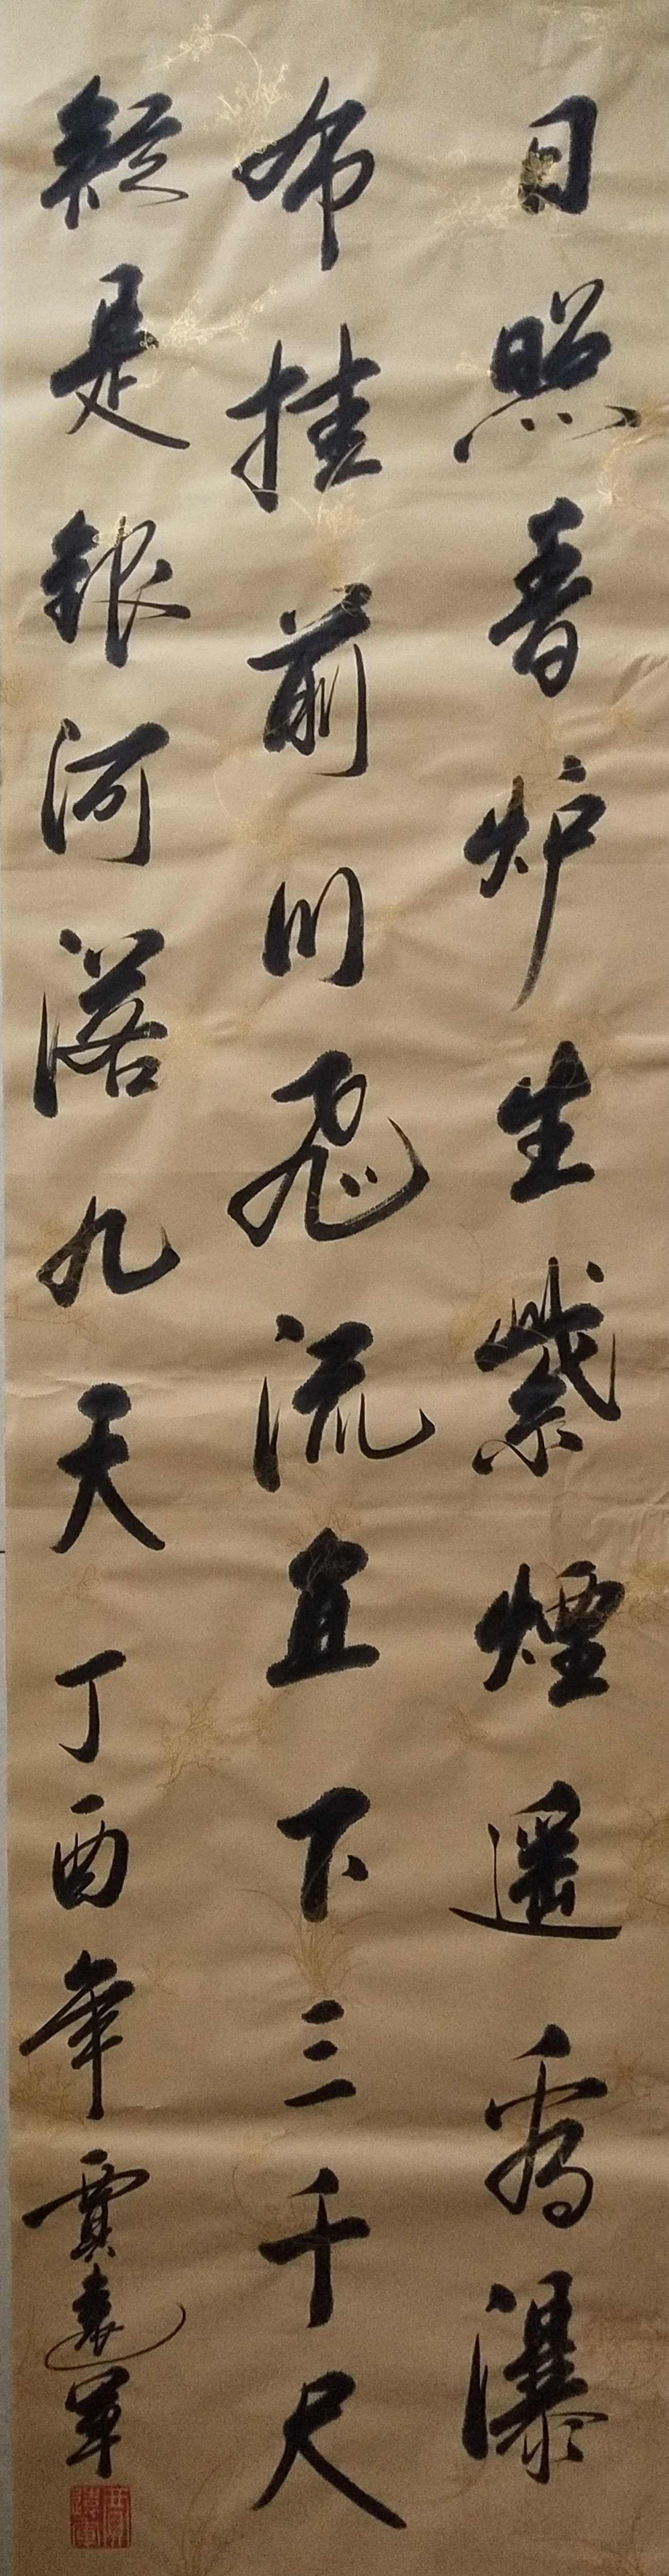 日照香炉生紫煙遥看瀑
布挂前川飛流直下三千尺
疑是銀河落九天 丁酉年 賈遠軍
賈遠軍